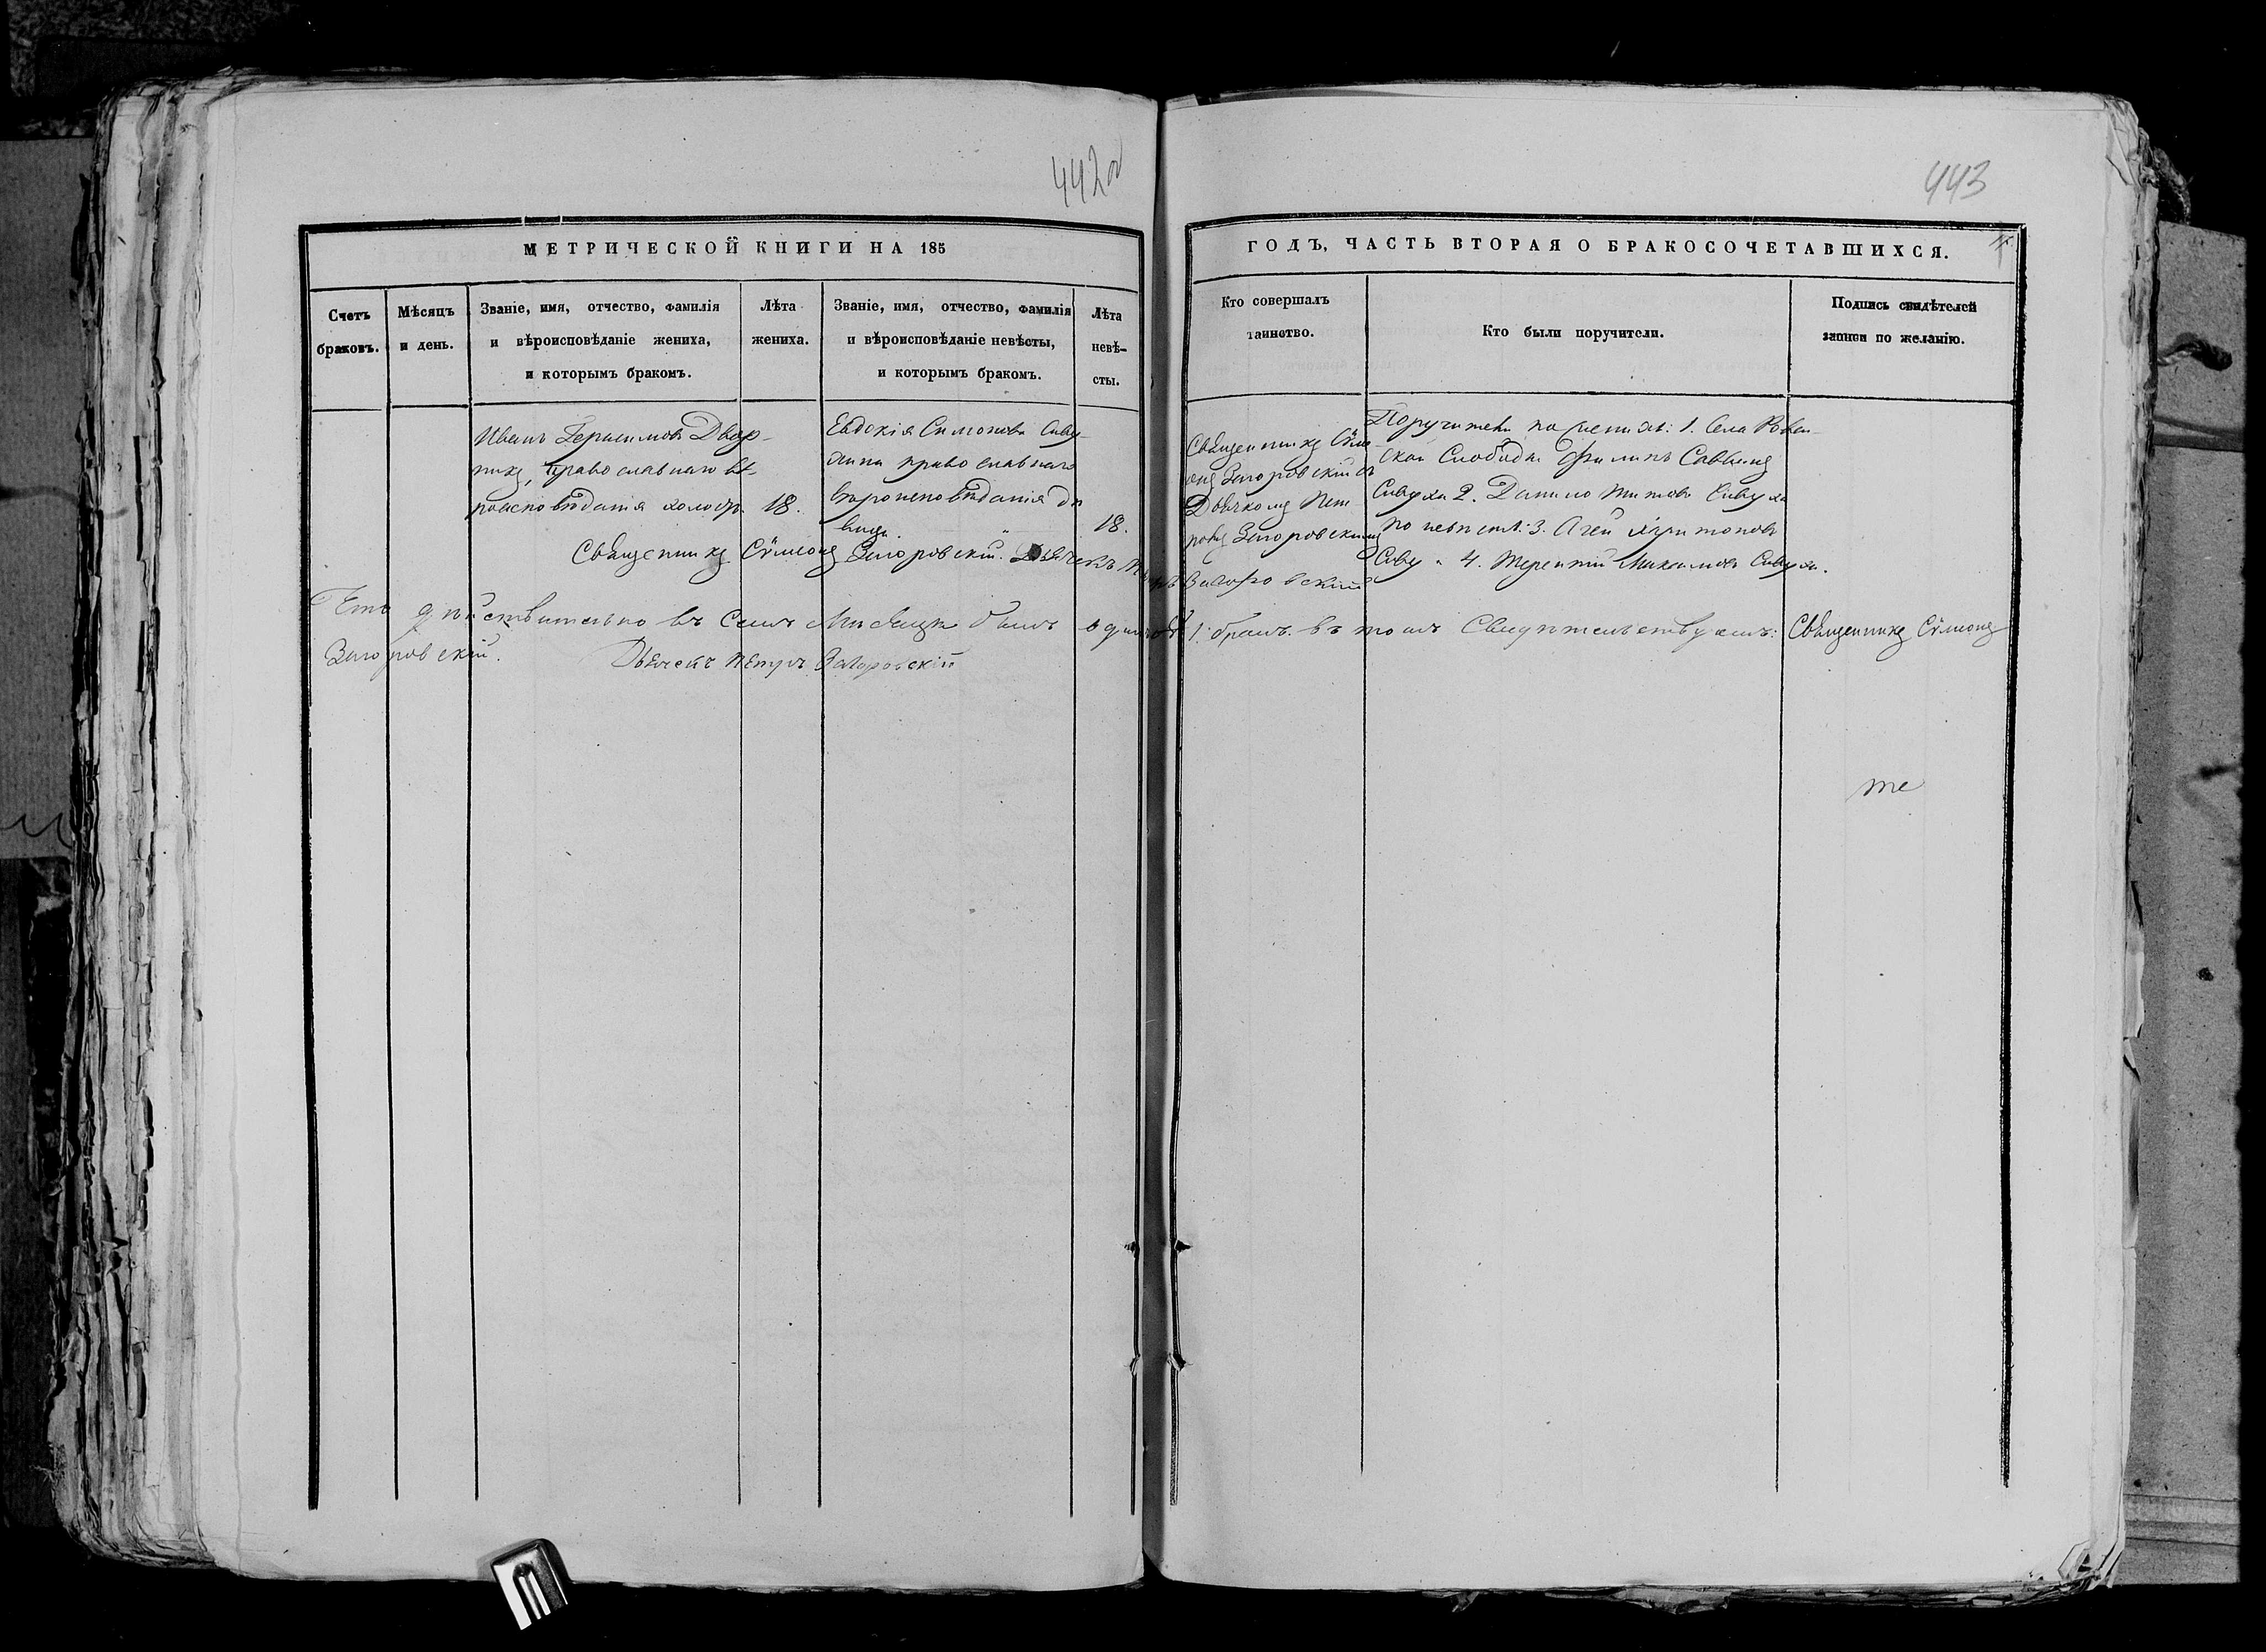 442
443
МЕТРИЧЕСКОЙ КНИГИ НА 185
ГОДЪ, ЧАСТЬ ВТОРАЯ О БРАКОСОЧЕТАВШИХСЯ.
Счетъ
браковъ.
Мѣсяцъ
и день.
Званіе, имя, отчество, фамилія
и вѣроисповѣданіе жениха,
и которымъ бракомъ.
Лѣта
жениха.
Званіе, имя, отчество, фамилія
и вѣроисповѣданіе невѣсты,
и которымъ бракомъ.
Лѣта
невѣ-
сты.
Кто совершалъ
таинство.
Кто были поручители.
Подпись свидѣтелей
записи по желанію.
Иванъ Герасимовъ Двор-
никъ, православнаго вѣ-
роисповѣданія холостъ.
18.
Евдокія Симонова
православнаго
вѣроисповѣданія дѣ
вица.
18.
Священникъ Сѵме
онъ Загоровскій съ
Дьячкомъ Пет
ромъ Загоровскимъ
Поручители по женихѣ: 1. Села
ской Слободы Филипъ Саввинъ
Сивуха 2. Данило Титовъ Сивуха
по невѣстѣ: 3. Агей Харитоновъ
Сиву 4. Терентій Максимовъ Сивуха.
Священникъ Сѵмеонъ Загоровскій. Дьячекъ Петръ Загоровскій
Что дѣйствительно въ Семъ Мѣсяцѣ былъ одинъ 1. бракъ. въ томъ Свидѣтельствуемъ: Священникъ Сѵмеонъ
Загоровскій. Дьячекъ Петръ Загоровскій
те